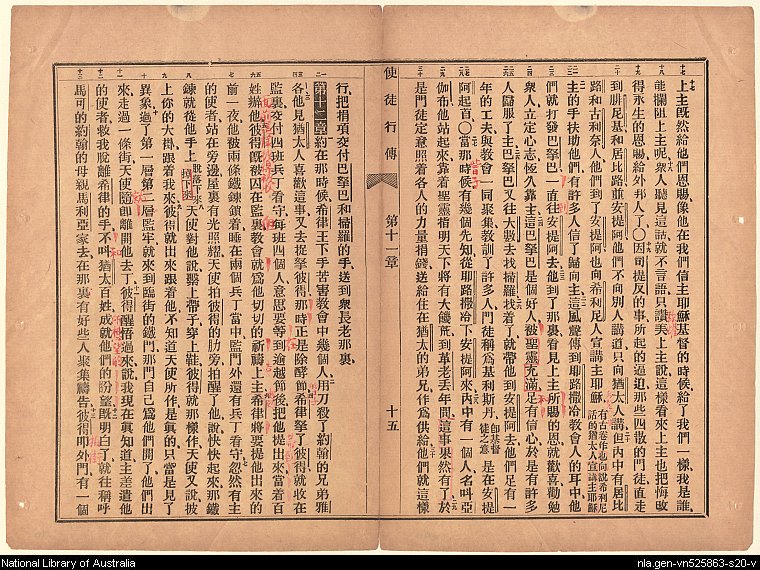 上主旣然給他們恩賜像他在我們信主耶穌基督的時候給了我們一樣我是誰
能攔阻上主呢衆人聽見這話就不言語只讚美上主說這樣看來上主也把悔改
得永生的恩賜給外邦人了〇因司提反的事所起的逼迫那些四散的門徒直走
到腓尼基和居比路並安提阿他們不向別人講道只向猶太人講但內中有居比
路和古利奈人他們到了安提阿也向希利尼人宣講主耶穌有古卷作也向說希利尼話的猶太人宣講主耶穌
主的手扶助他們有許多人信了歸向主這風聲傳到耶路撒冷教會人的耳中他
們就打發巴拏巴一直往安提阿去他到了那裏看見上主所賜的恩就歡喜勸勉
衆人立定心志恆久靠主這巴拏巴是個好人被聖靈充滿足有信心於是有許多
人歸服了主巴拏巴又往大數去找掃羅找着了就帶他到安提阿去他們足有一
年的工夫與教會一同聚集教訓了許多人門徒稱爲基利斯丹卽基督徒之意是在安提
阿起首〇當那時候有幾個先知從耶路撒冷下安提阿來內中有一個人名叫亞
伽布他站起來靠着聖靈指明天下將有大饑荒到革老丢年間這事果然有了於
是門徒定意照着各人的力量捐錢送給住在猶太的弟兄作爲供給他們就這樣
使徒行傳
第十一章
十五
行把捐項交付巴拏巴和掃羅的手送到衆長老那裏
第十二章約在那時候希律王下手苦害教會中幾個人用刀殺了約翰的兄弟雅
各他見猶太人喜歡這事又去捉拏彼得那時正是除酵節希律拏了彼得就收在
監裏交付四班兵丁看守每班四個人意思要等到逾越節後把他提出來當着百
姓辦他彼得旣被囚在監裏教會就爲他切切的祈禱上主希律將要提他出來的
前一夜他被兩條鐵鍊鎖着睡在兩個兵丁當中監門外還有兵丁看守忽然有主
的使者站在旁邊屋裏有光照耀天使拍彼得的肋旁拍醒了他說快快起來那鐵
鍊就從他手上脫落下來天使對他說繫上帶子穿上鞋彼得就那樣作天使又說披
上你的大掛跟着我來彼得就出來跟着他不知道天使所作是眞的只當是見了
異象過了第一層第二層監牢就來到臨街的鐵門那門自己爲他們開了他們出
來走過一條街天使隨卽離開他去了彼得醒悟過來說我現在眞知道主差遣他
的使者救我脫離希律的手不叫猶太百姓成就他們的盼望旣明白了就往稱呼
馬可的約翰的母親馬利亞家去在那裏有好些人聚集禱告彼得叩外門有一個
National Library of Australia
nla.gen-vn525863-s20-v